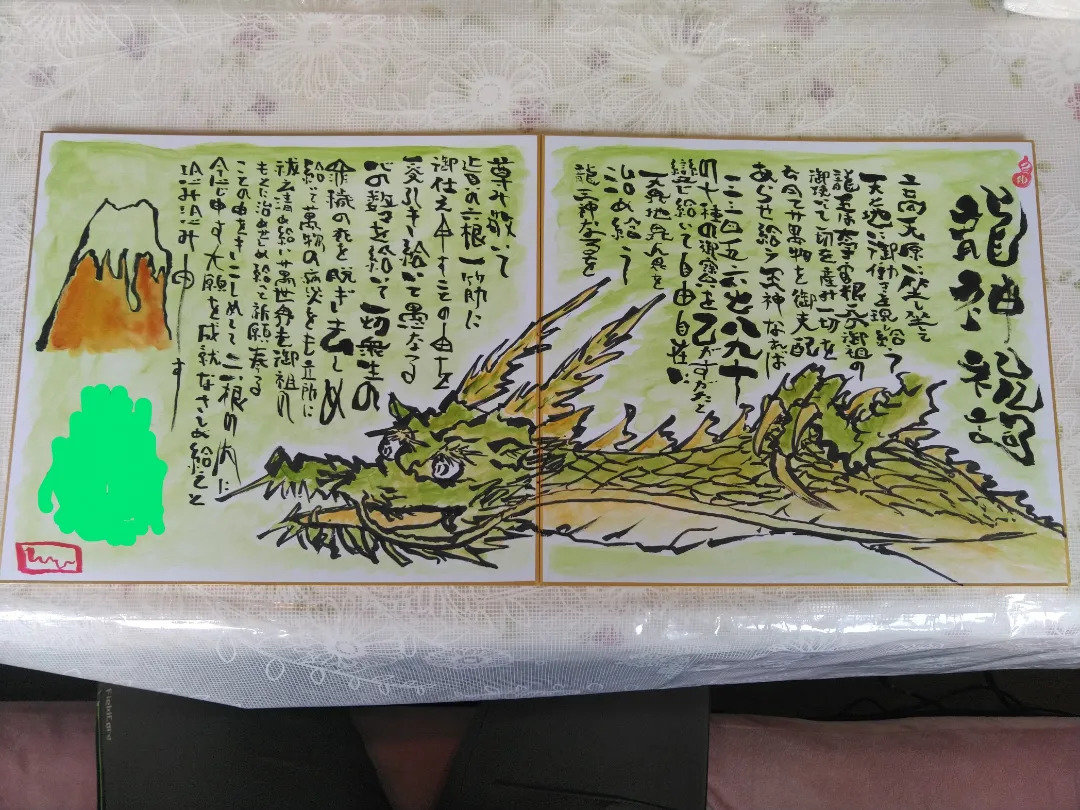 龍神祝詞
高天原に坐し坐して
天と地に御働きを現し給う
龍王は大宇宙根元の御祖の
御使いにして一切を産み一切を
育て萬物を御支配
あらせ給う王神なれば
一二三四五六七八九十
の十種の御寶を己がすがたと
變じ給いて自由自在に
天界地界人界を
治め給う
龍王神なるを
尊み敬いて
眞の六根一筋に
御仕え申すことの由を
受引き給いて愚かなる
心の数々を
給いて一切衆生の
穢の衣を脱ぎ去らしめ
給いて萬物の病災をも立所に
祓い清め給い萬世界も御祖の
もとに治めせしめ給へと祈願奉る
ことの由をきこしめして六根の内に
念じ申す大願を成就なさしめ給へと
恐み恐み申す